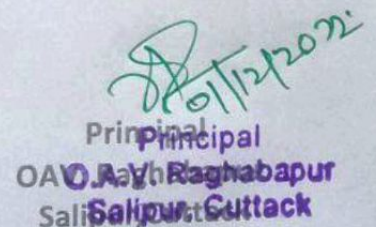 01/12/2022
Principal
Principal
OAV Raghabapur
O.A.V. Raghabapur
Salipur, Cuttack
Salipur, Cuttack